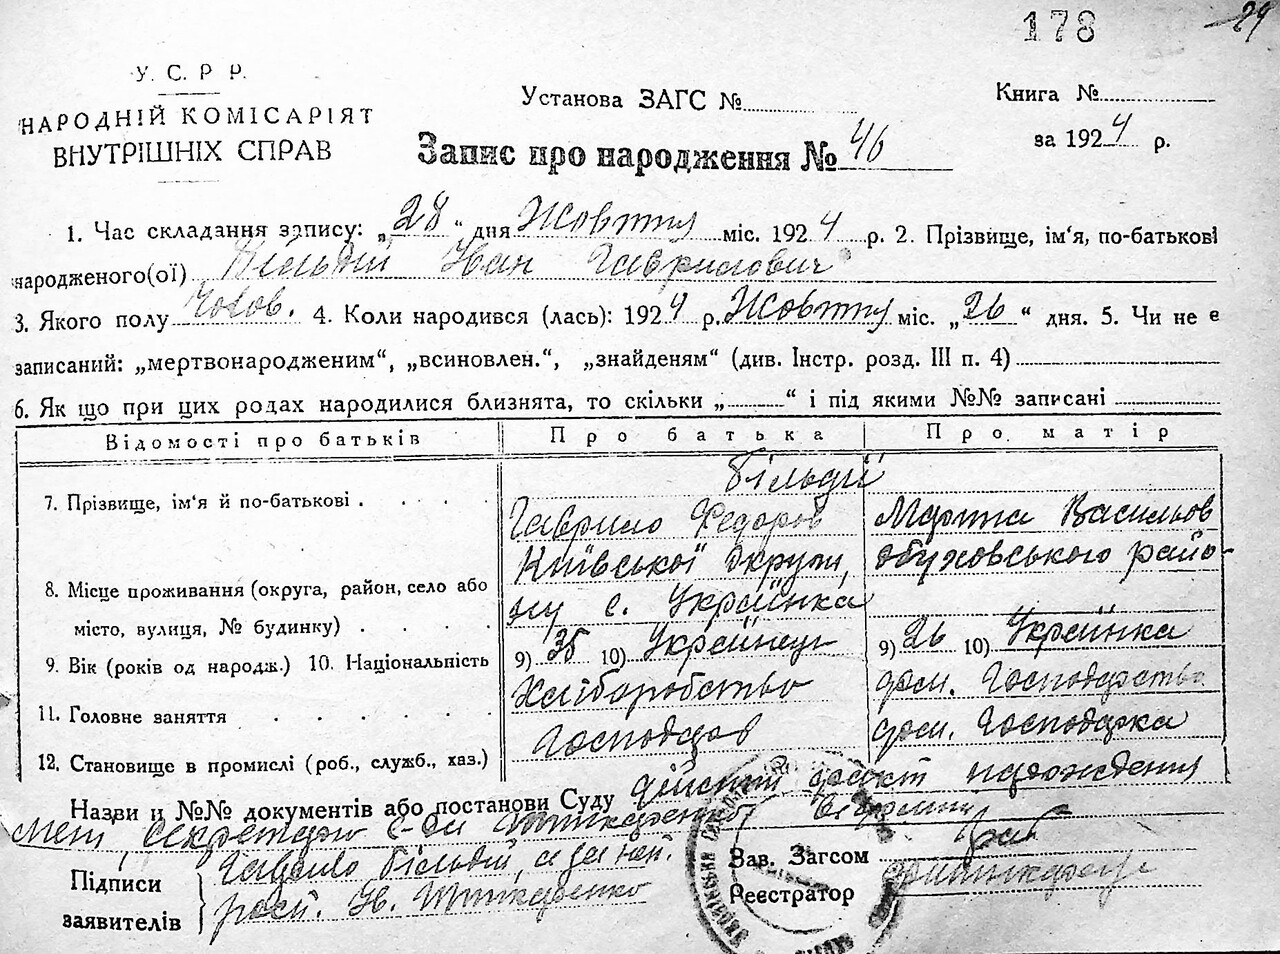 178
29
У. С. Р. Р.
НАРОДНІЙ КОМІСАРІЯТ
ВНУТРІШНІХ СПРАВ
Установа ЗАГС №
Книга №
за 1924 р.
Запис про народження № 46
1. Час складання запису: „28“ дня Жовтня міс. 1924 р. 2. Прізвище, ім‘я, по-батькові
народженого(ої) Більдій Іван Гаврилович
3. Якого полу Чолов. 4. Коли народився (лась): 1924 р. Жовтня міс. „26“ дня. 5. Чи не є
записаний: „мертвонародженим“, „всиновлен.“, „знайденям“ (див. Інстр. розд. III п. 4)
6. Як що при цих родах народилися близнята, то скільки „ “ і під якими №№ записані
Відомості про батьків Про батька Про матір
Більдії
7. Прізвище, ім‘я й по-батькові Гаврило Федоров Марта Васильов
Київської округи, обуховського райо-
8. Місце проживання (округа, район, село або ну с. Українка
місто, вулиця, № будинку)
9. Вік (років од народж.) 10. Національність 9) 35 10) Українець 9) 26 10) Українка
11. Головне заняття Хліборобство дом. Господарство
12. Становище в промислі (роб., служб., хаз.) Господар дом. Господарка
Назви и №№ документів або постанови Суду дійсний факт народження
секретарь с-ди
Підписи
заявителів
Гаврило Більдій,
Зав. Загсом
Реєстратор